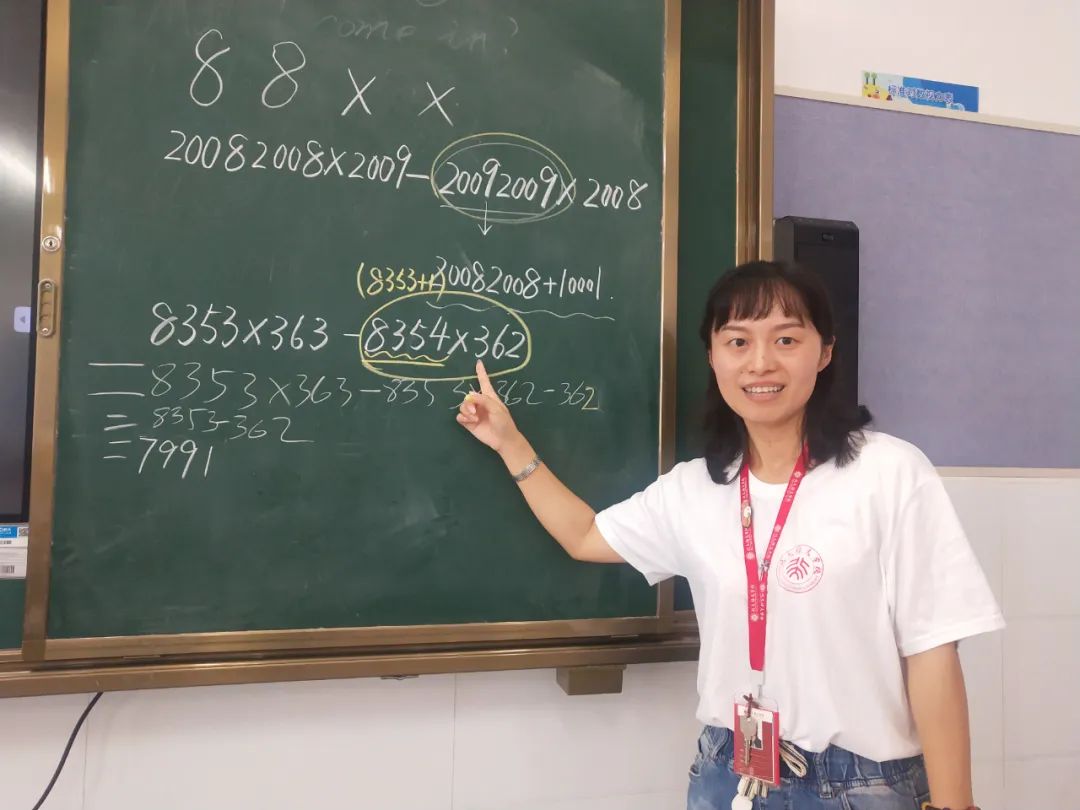 come in?
8 8 × ×
20082008×2009-20092009×2008
(8353+1)
20082008+10001.
8353×363-8354×362
=8353×363-8353×362-362
=8353-362
=7991